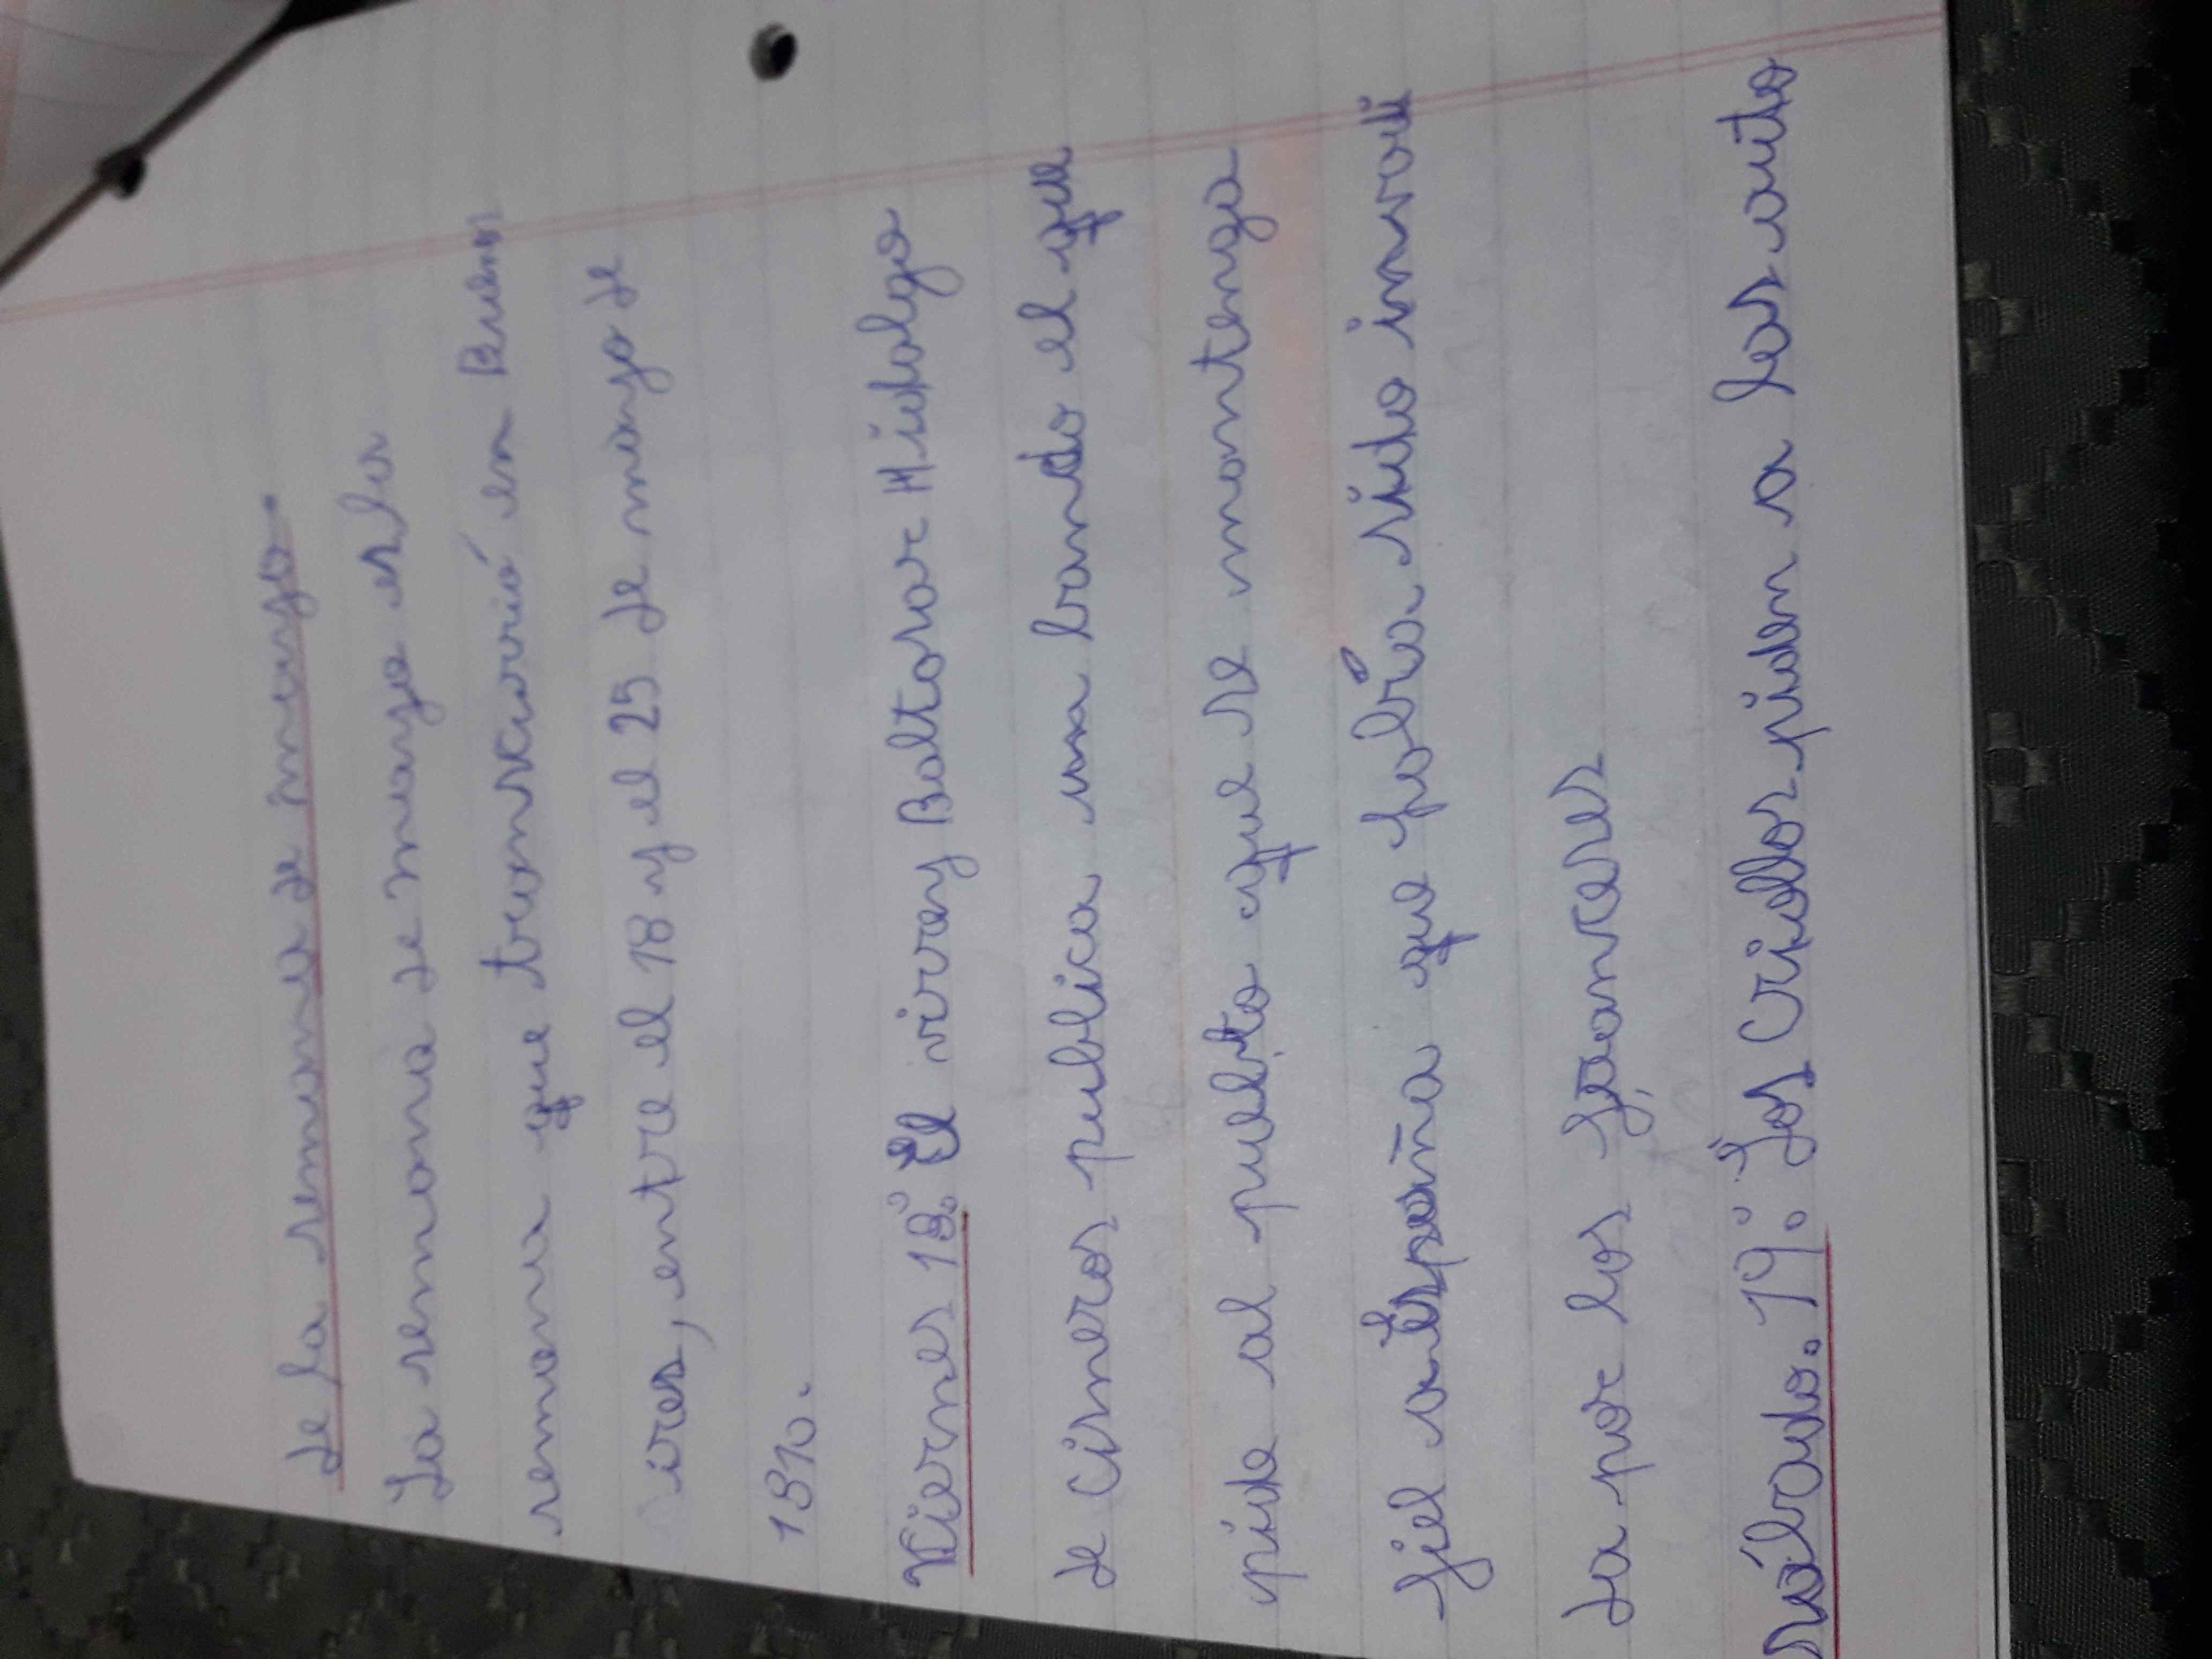 de la semana de mayo.
La semana de mayo es la
semana que transcurrió en Buenos
Aires, entre el 18 y el 25 de mayo de
1810.
Viernes 18: El virrey Baltasar Hidalgo
de Cisneros publica una bando el que
pide al pueblo que se mantenga
fiel a España que había sido invadi
da por los franceses
sábado. 19: Los Criollos piden a las auto